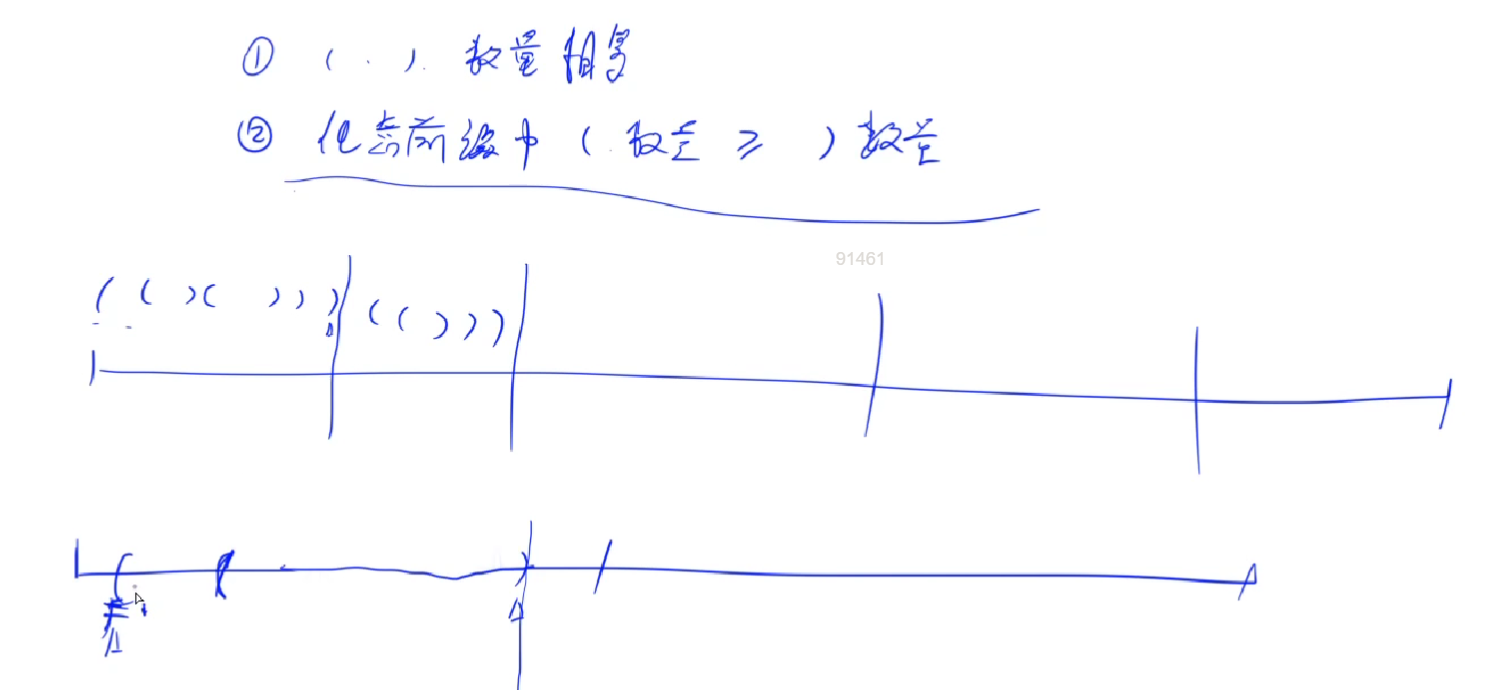 ① ( . ). 数量相等
② 任意前缀中 ( 数量 ≥ ) 数量
91461
( ( ) ( ) ) ) ( ( ) ) )
( ( )